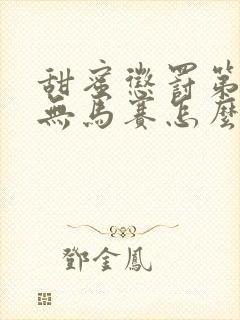 甜蜜懲罰第
無馬賽怎麼
鄧金鳳